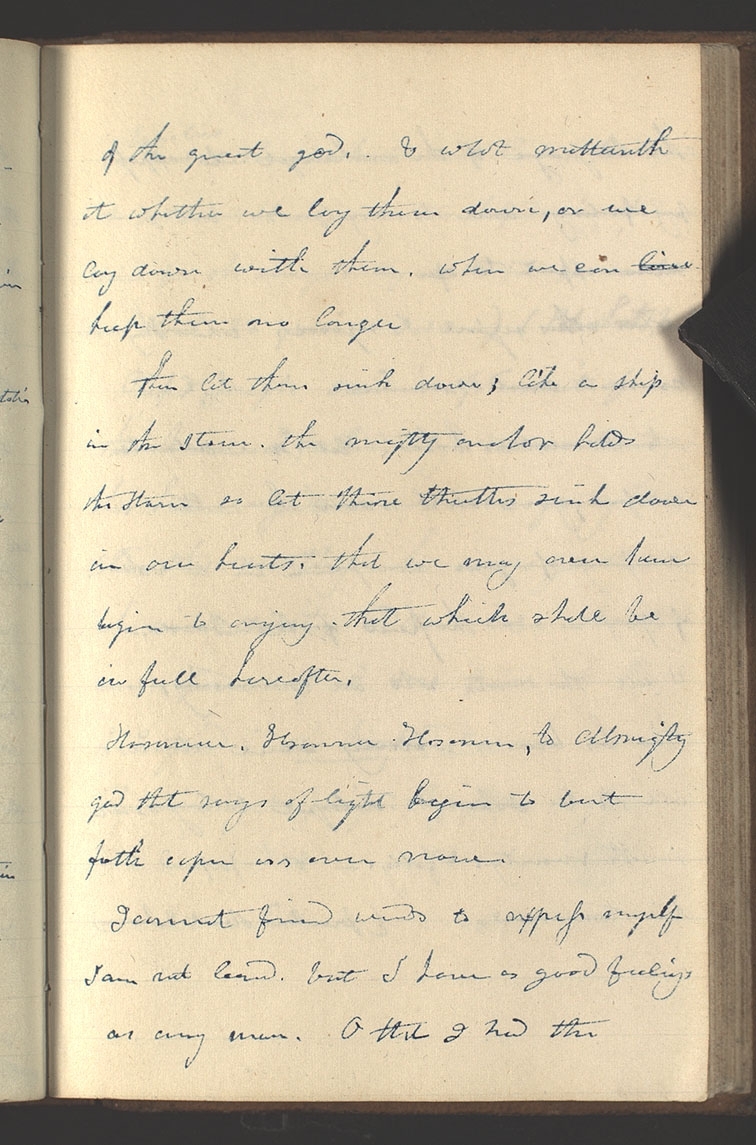 of the great god. & what mattereth
it whether we lay them down, or we
lay down with them. when we can live
keep them no longer
Then let them sink down; like a ship
in the storm. the mighty anchor holds
the storm so let those thruths sink down
in our hearts. that we may even hear
begin to enjoy that which shall be
in full hereafter.
Hosanna, Hosanna Hosanna, to Almighty
god that rays of light begin to burst
forth upon us even now.
I cannot find words to express myself
I am not learned. but I have as good feelings
as any man. O that I had the